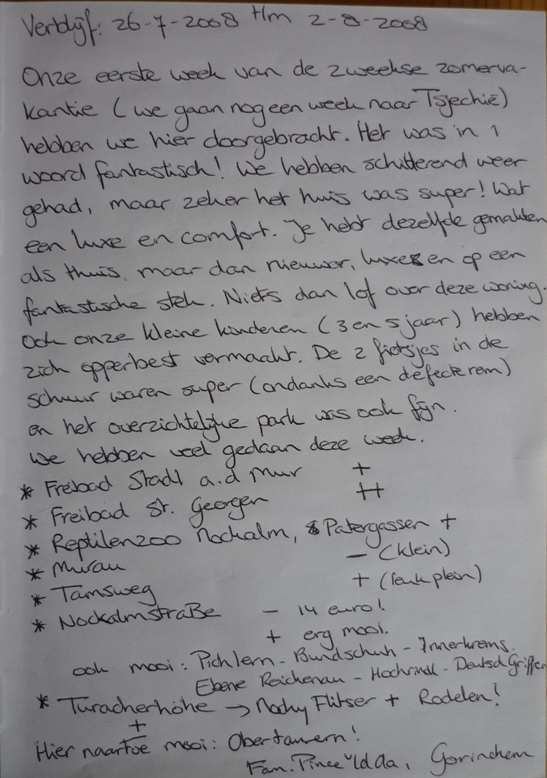 Verblijf: 26-7-2008 t/m 2-8-2008
Onze eerste week van de 2weekse zomerva-
kantie (we gaan nog een week naar Tsjechië)
hebben we hier doorgebracht. Het was in 1
woord fantastisch! We hebben schitterend weer
gehad, maar zeker het huis was super! Wat
een luxe en comfort. Je hebt dezelfde gemakken
als thuis, maar dan nieuwer, luxer en op een
fantastische stek. Niets dan lof over deze woning.
Ook onze kleine kinderen (3 en 5 jaar) hebben
zich opperbest vermaakt. De 2 fietsjes in de
schuur waren super (ondanks een defecte rem)
en het overzichtelijke park was ook fijn.
We hebben veel gedaan deze week.
* Freibad Stadl a.d Mur +
* Freibad St. Georgen ++
* Reptilenzoo Nockalm, Patergassen +
* Murau - (klein)
* Tamsweg + (leuk plein)
* Nockalmstraße - 14 euro!
+ erg mooi.
ook mooi: Pichlern - Bundschuh - Innerkrems.
Ebene Reichenau - Hochrindl - Deutsch Griffen
* Turacherhöhe → Nocky Flitser + Rodelen!
+
Hier naartoe mooi: Obertauern!
Fam. Gorinchem